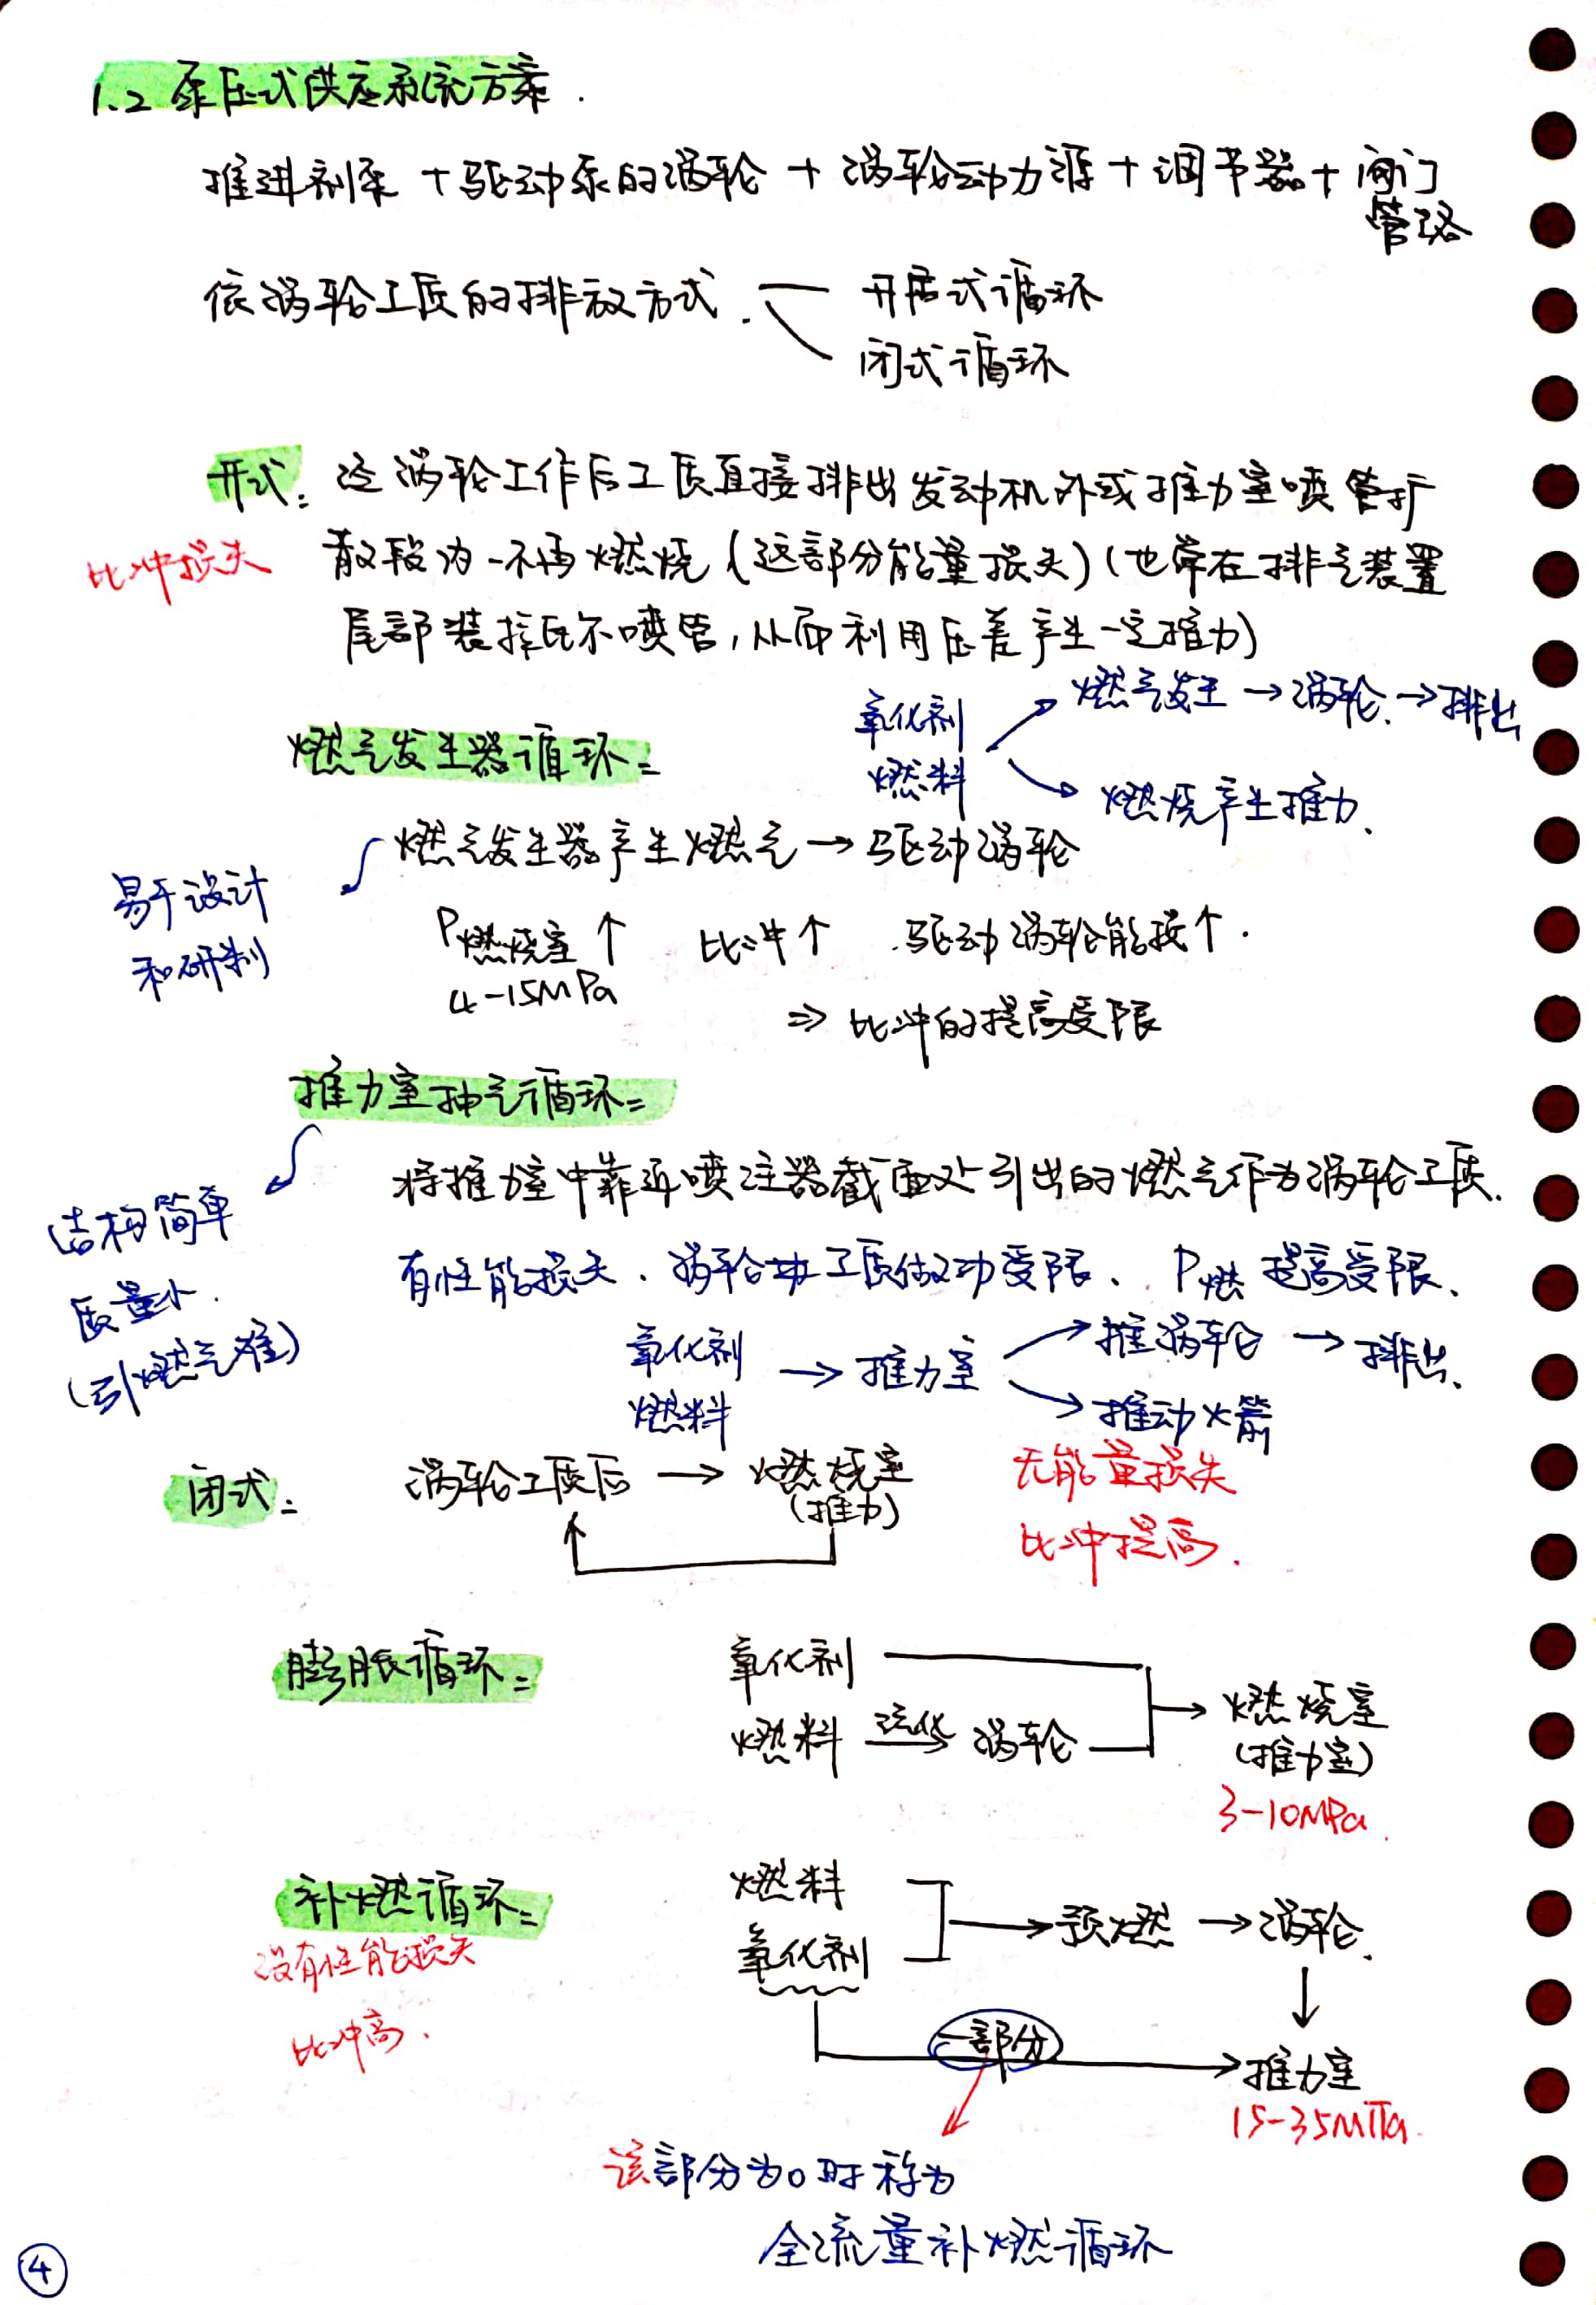 1.2 泵压式供应系统方案.
推进剂泵 + 驱动泵的涡轮 + 涡轮动力源 + 调节器 + 阀门
管路
依涡轮工质的排放方式. 开式循环
闭式循环
开式: 涡轮工作后工质直接排出发动机外或推力室喷管扩
比冲损失
散段内-不再燃烧(这部分能量损失)(也常在排气装置
尾部装喷管,从而利用压差产生一定推力)
氧化剂
燃料
燃气发生 → 涡轮. → 排出
燃烧产生推力.
燃气发生器循环:
燃气发生器产生燃气 → 驱动涡轮
易于设计
和研制
P燃烧室 ↑ 比冲↑ 驱动涡轮能接↑.
4-15MPa
⇒ 比冲的提高受限
推力室抽气循环:
将推力室中靠近喷注器截面处引出的燃气作为涡轮工质.
结构简单
质量小.
(引燃气难)
有性能损失、涡轮工质做功受限、P燃 提高受限、
氧化剂
燃料
→ 推力室
推涡轮 → 排出.
推动火箭
闭式: 涡轮工质后 → 燃烧室
(推力)
无能量损失
比冲提高.
膨胀循环: 氧化剂
燃料 涡轮 → 燃烧室
(推力室)
3-10MPa.
补燃循环: 燃料
氧化剂
→ 预燃 → 涡轮.
没有性能损失
比冲高.
一部分 → 推力室
15-35MPa.
该部分为0时称为
全流量补燃循环
4